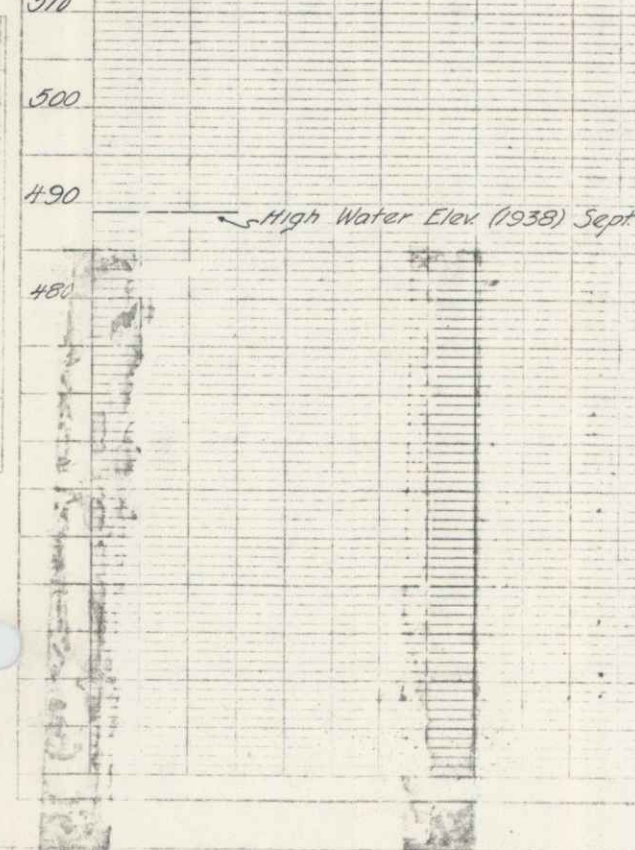 510
500
490
High Water Elev. (1938) Sept.
480